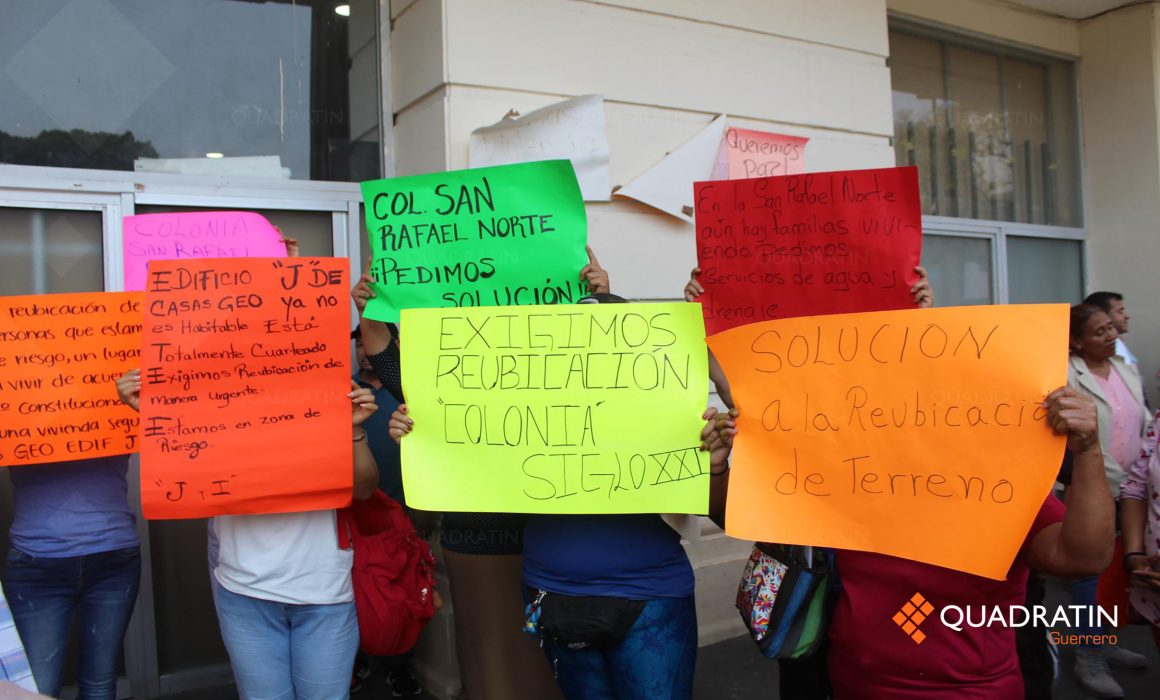 Queremos
paz!
COL. SAN
RAFAEL NORTE
¡¡PEDIMOS
SOLUCIÓN!!
En la San Rafael Norte
aún hay familias vivi-
endo. Pedimos
Servicios de agua y
drenaje
COLONIA
SAN RAFAEL
EDIFICIO "J" DE
CASAS GEO ya no
es Habitable Está
Totalmente Cuarteado
Exigimos Reubicación de
manera urgente.
Estamos en zona de
Riesgo.
"J y I
reubicación de
personas que estam
riesgo, un lugar
vivir de acue
constitucional
una vivienda segu
GEO EDIF J
EXIGIMOS
REUBICACIÓN
"COLONIA"
SIGLO XXI
SOLUCION
A la Reubicació
de Terreno
QUADRATIN
Guerrero